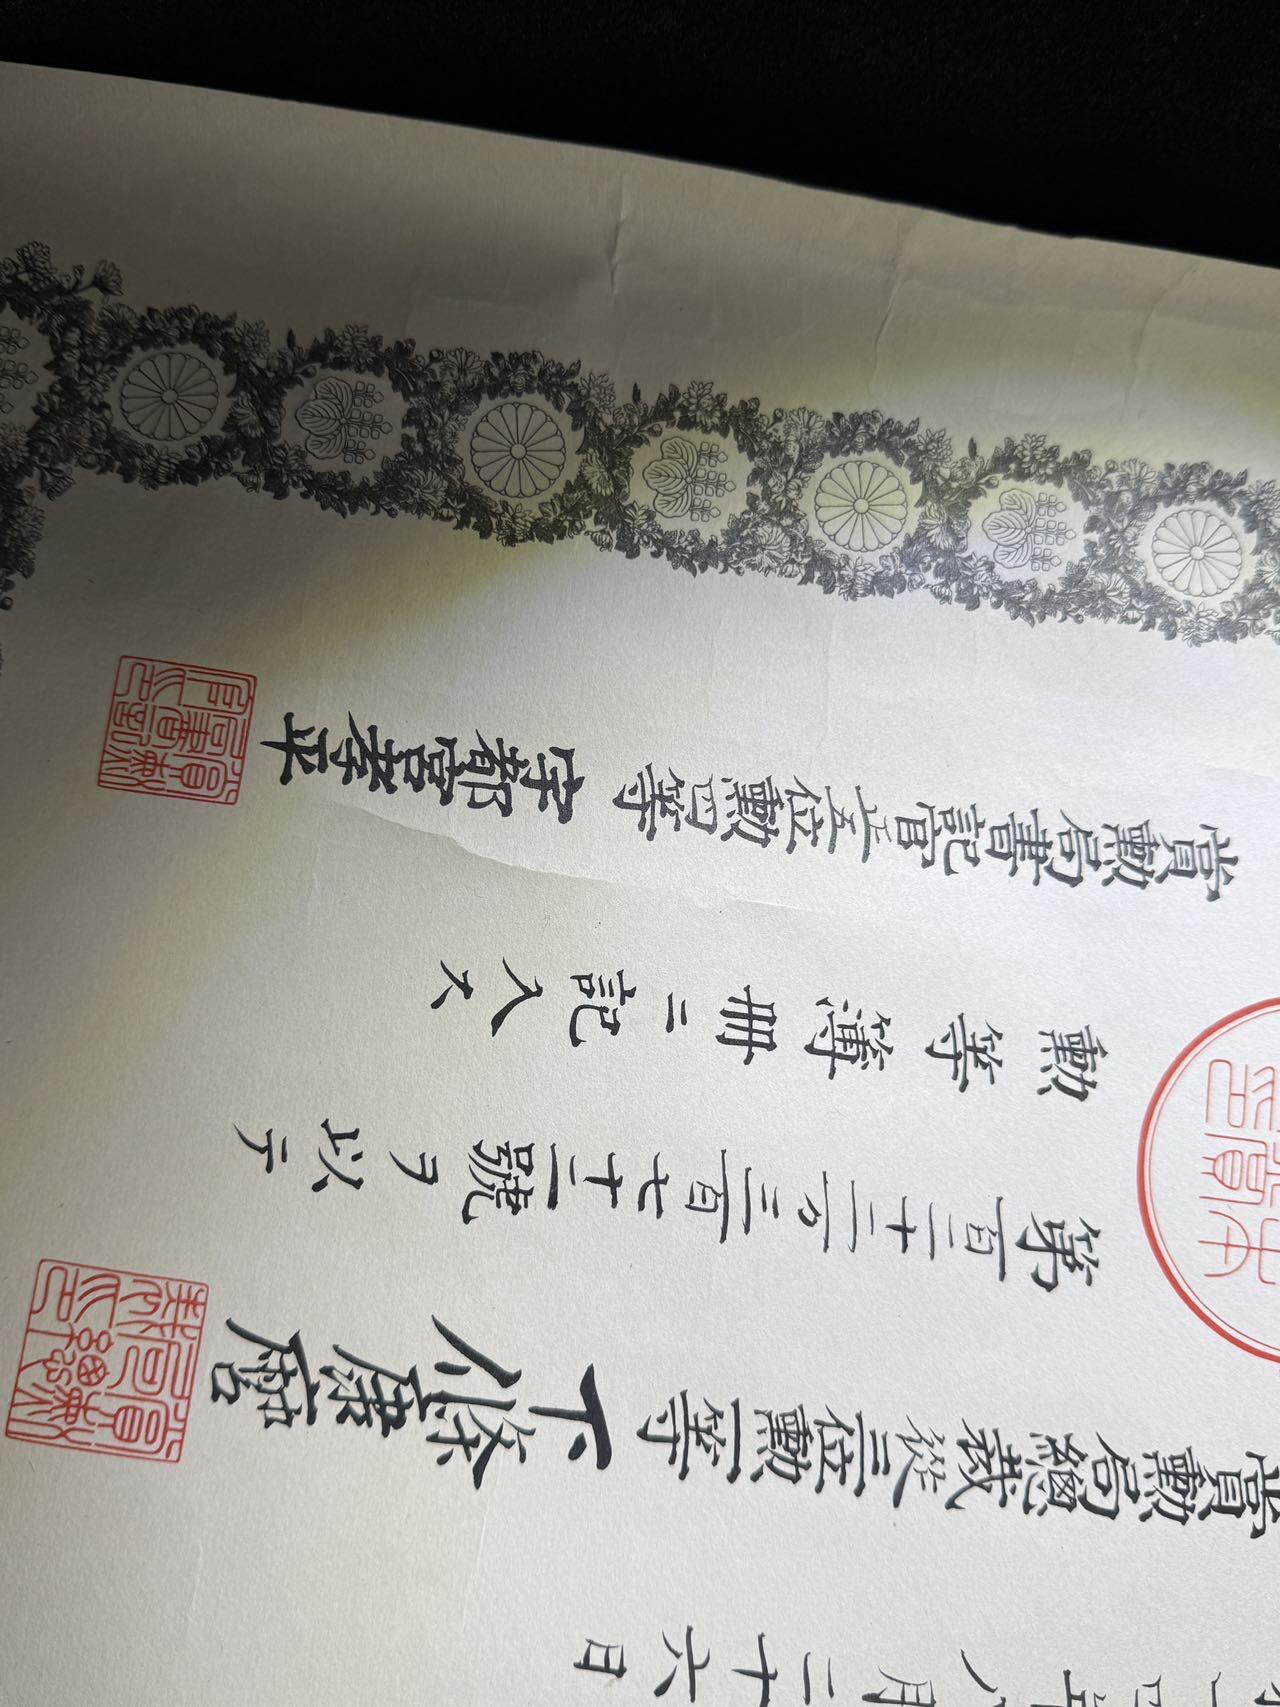 四年八月二十六日
賞勲局總裁從三位勲一等下條康麿
第百二十二万三百七十二號ヲ以テ
勲等簿册ニ記入ス
賞勲局書記官正五位勲四等宇都宮孝平